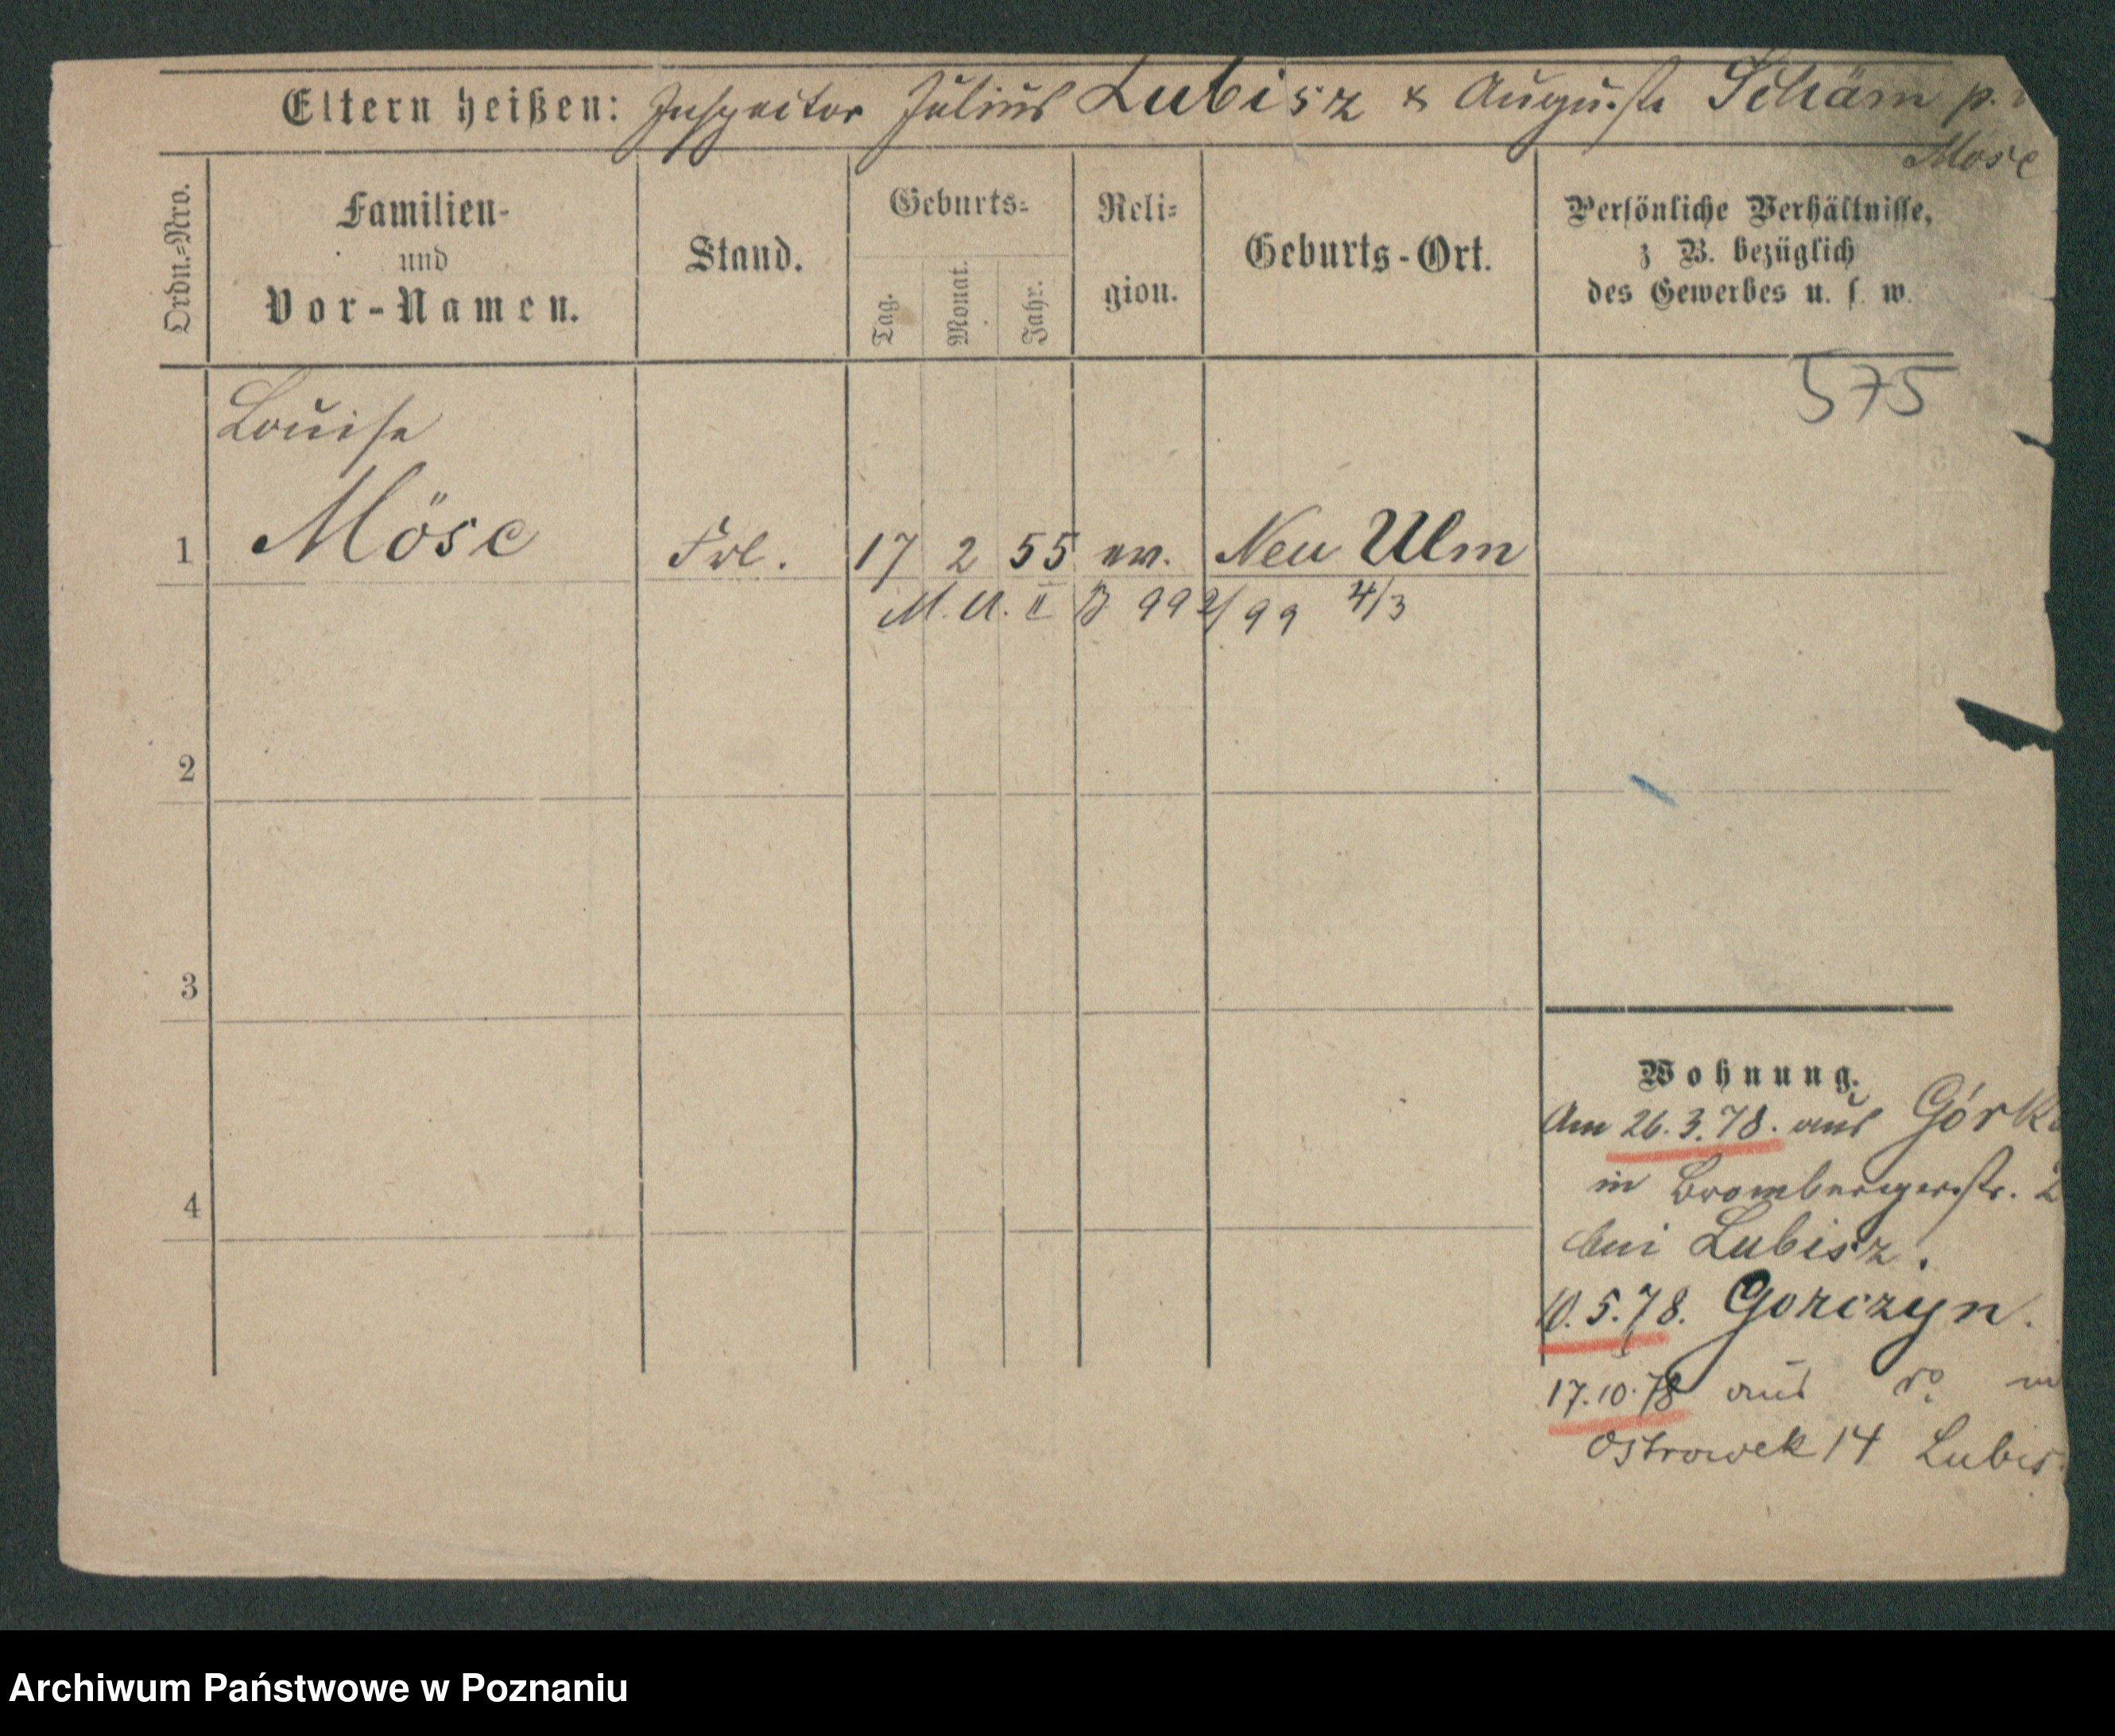 Eltern heißen: Inspector Julius Lubisz & Auguste Schäm p.
Möse
Ordn.=Nro.
Familien-
und
Vor-Namen.
Stand.
Geburts=
Tag.
Monat.
Jahr.
Reli=
gion.
Geburts-Ort.
Persönliche Verhältnisse,
z B. bezüglich
des Gewerbes u. s. w.
575
Louise
1 Möse Frl. 17 2 55 ev. Neu Ulm
M. A. II B 992/99 4/3
2
3
4
Wohnung.
Am 26.3.78. aus Górk
in Brombergerstr. 2
bei Lubisz.
10.5.78. Gorczyn.
17.10.78 aus do. in
Ostrowek 14 Lubis
Archiwum Państwowe w Poznaniu